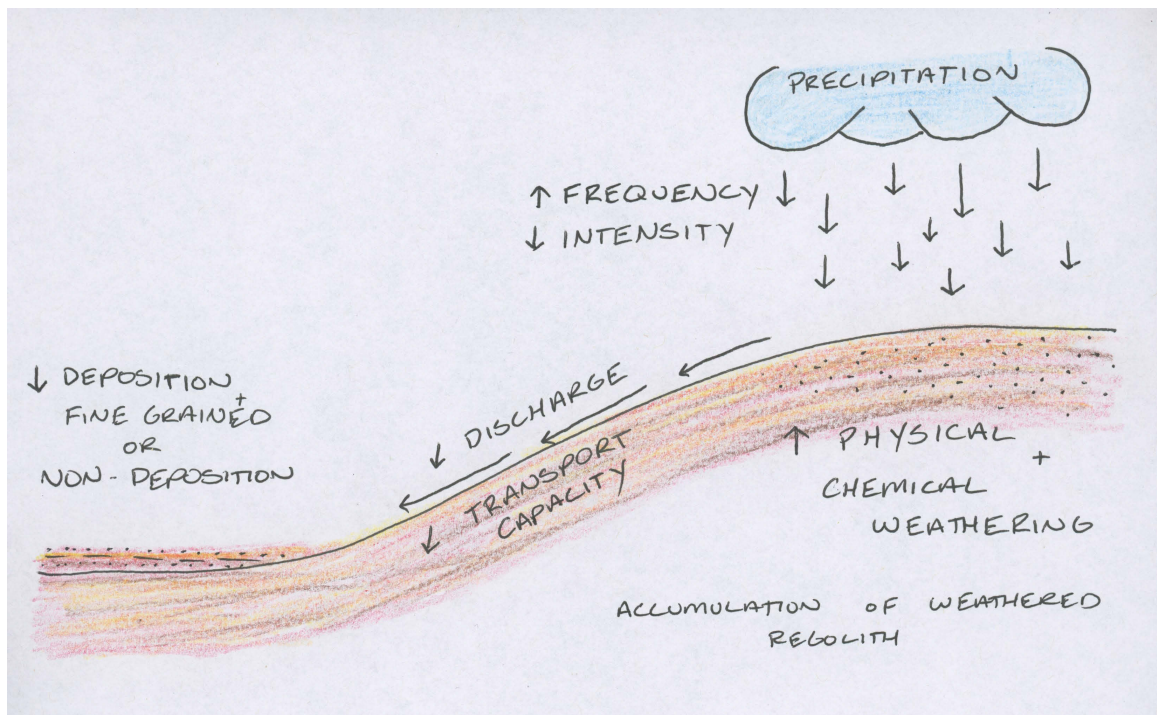 PRECIPITATION
↑ FREQUENCY
↓ INTENSITY
↓ DEPOSITION
+
FINE GRAINED
OR
NON-DEPOSITION
↓ DISCHARGE
↓ TRANSPORT
CAPACITY
↑ PHYSICAL
+
CHEMICAL
WEATHERING
ACCUMULATION OF WEATHERED
REGOLITH